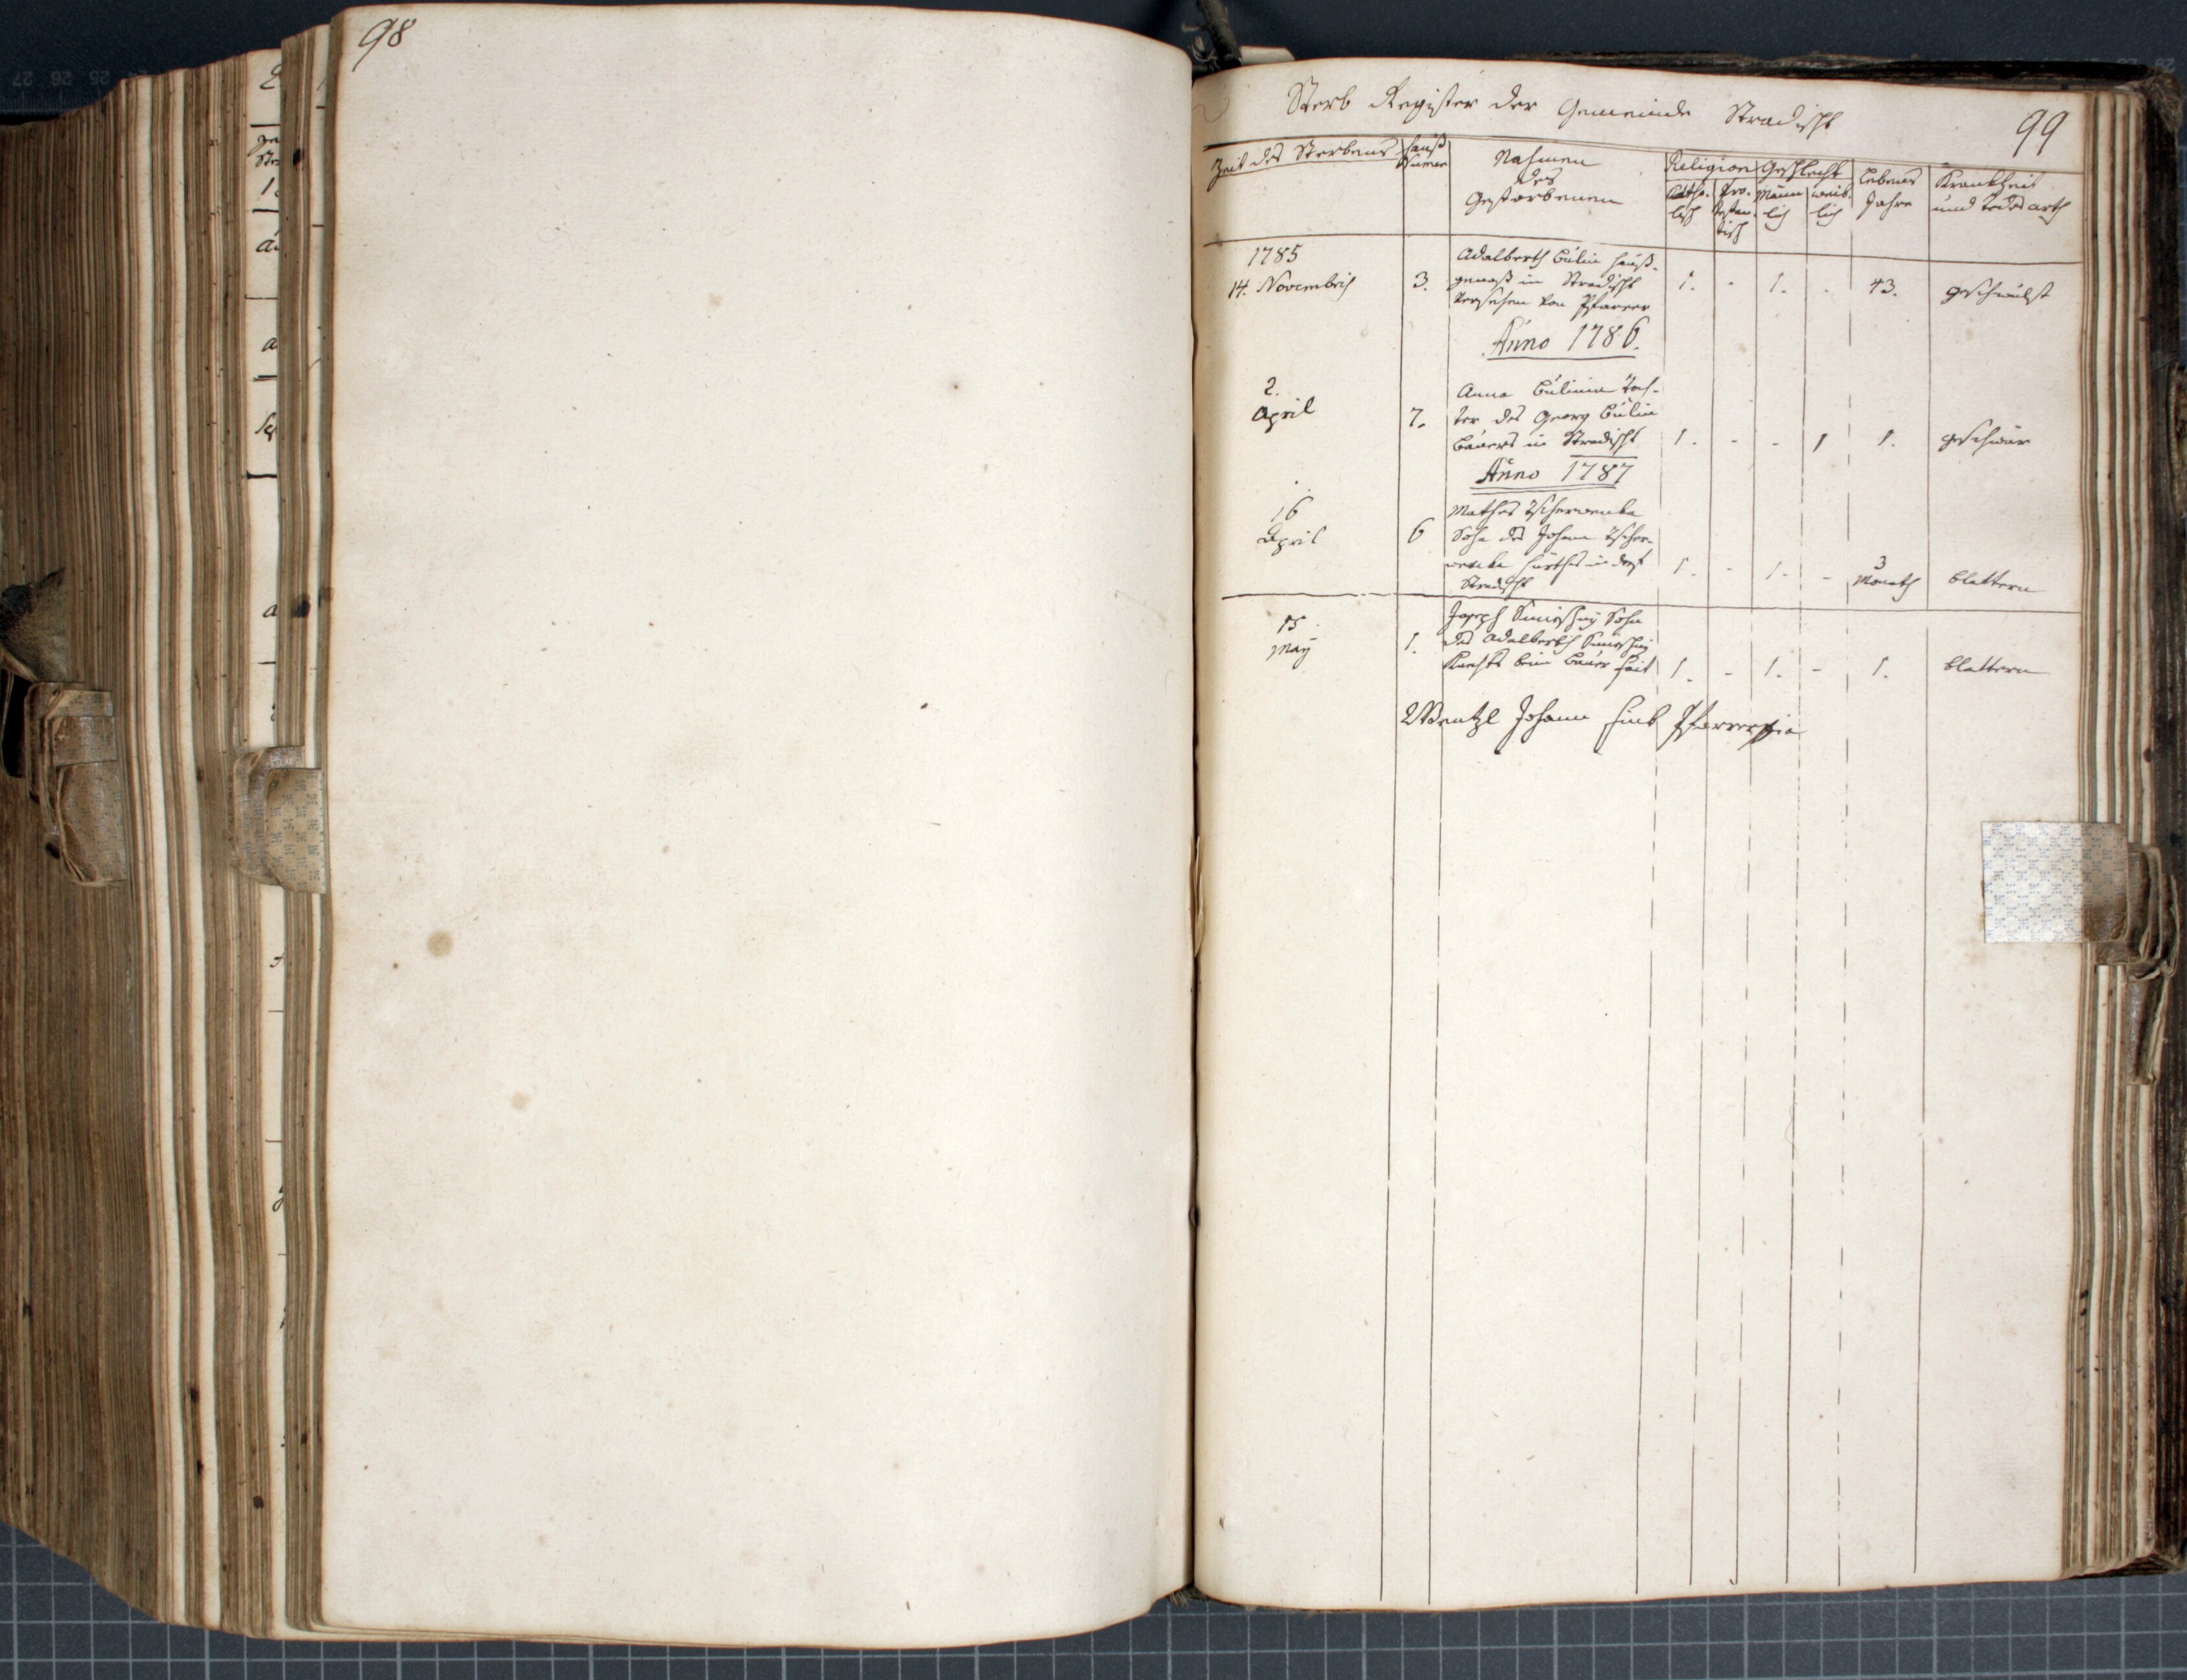 98
99
Sterb Register der Gemeinde Stradischt
Zeit des Sterbens
Hauß Numer
Nahmen
des
Gestorbenen
Religion
Katho-
lisch
Pro-
testan-
tisch
Geschlecht
Männ
lich
weib-
lich
Lebens
Jahre
Krankheit
und todes arth
1785
14. Novembris
3.
Adalberth Bulin Hauß-
genoß in Stradischt
versehen von Pfarrer
1. - 1. - 43. geschwulst
Anno 1786.
2.
April
7.
Anna Bulinin toch-
ter des Georg Bulin
Bauers in Stradischt
1. - - 1 1. geschwär
Anno 1787
16
April
6
Mathes Tscherwenka
Sohn des Johann Tscher-
wenka in
Stradischt
1. - 1. - 3 Monath blattern
15
May
1.
Joseph Sohn
des Adalberth
Knechts beim Bauer
1. - 1. - 1. blattern
Wentzl Johann Pfarrer